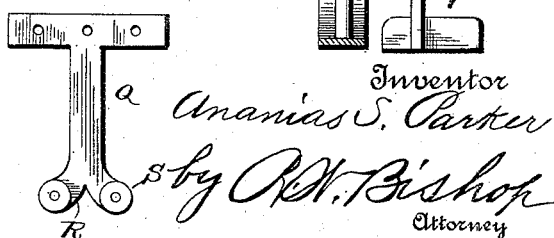 Inventor
Q
Ananias S. Parker
S
by R. W. Bishop
R
Attorney